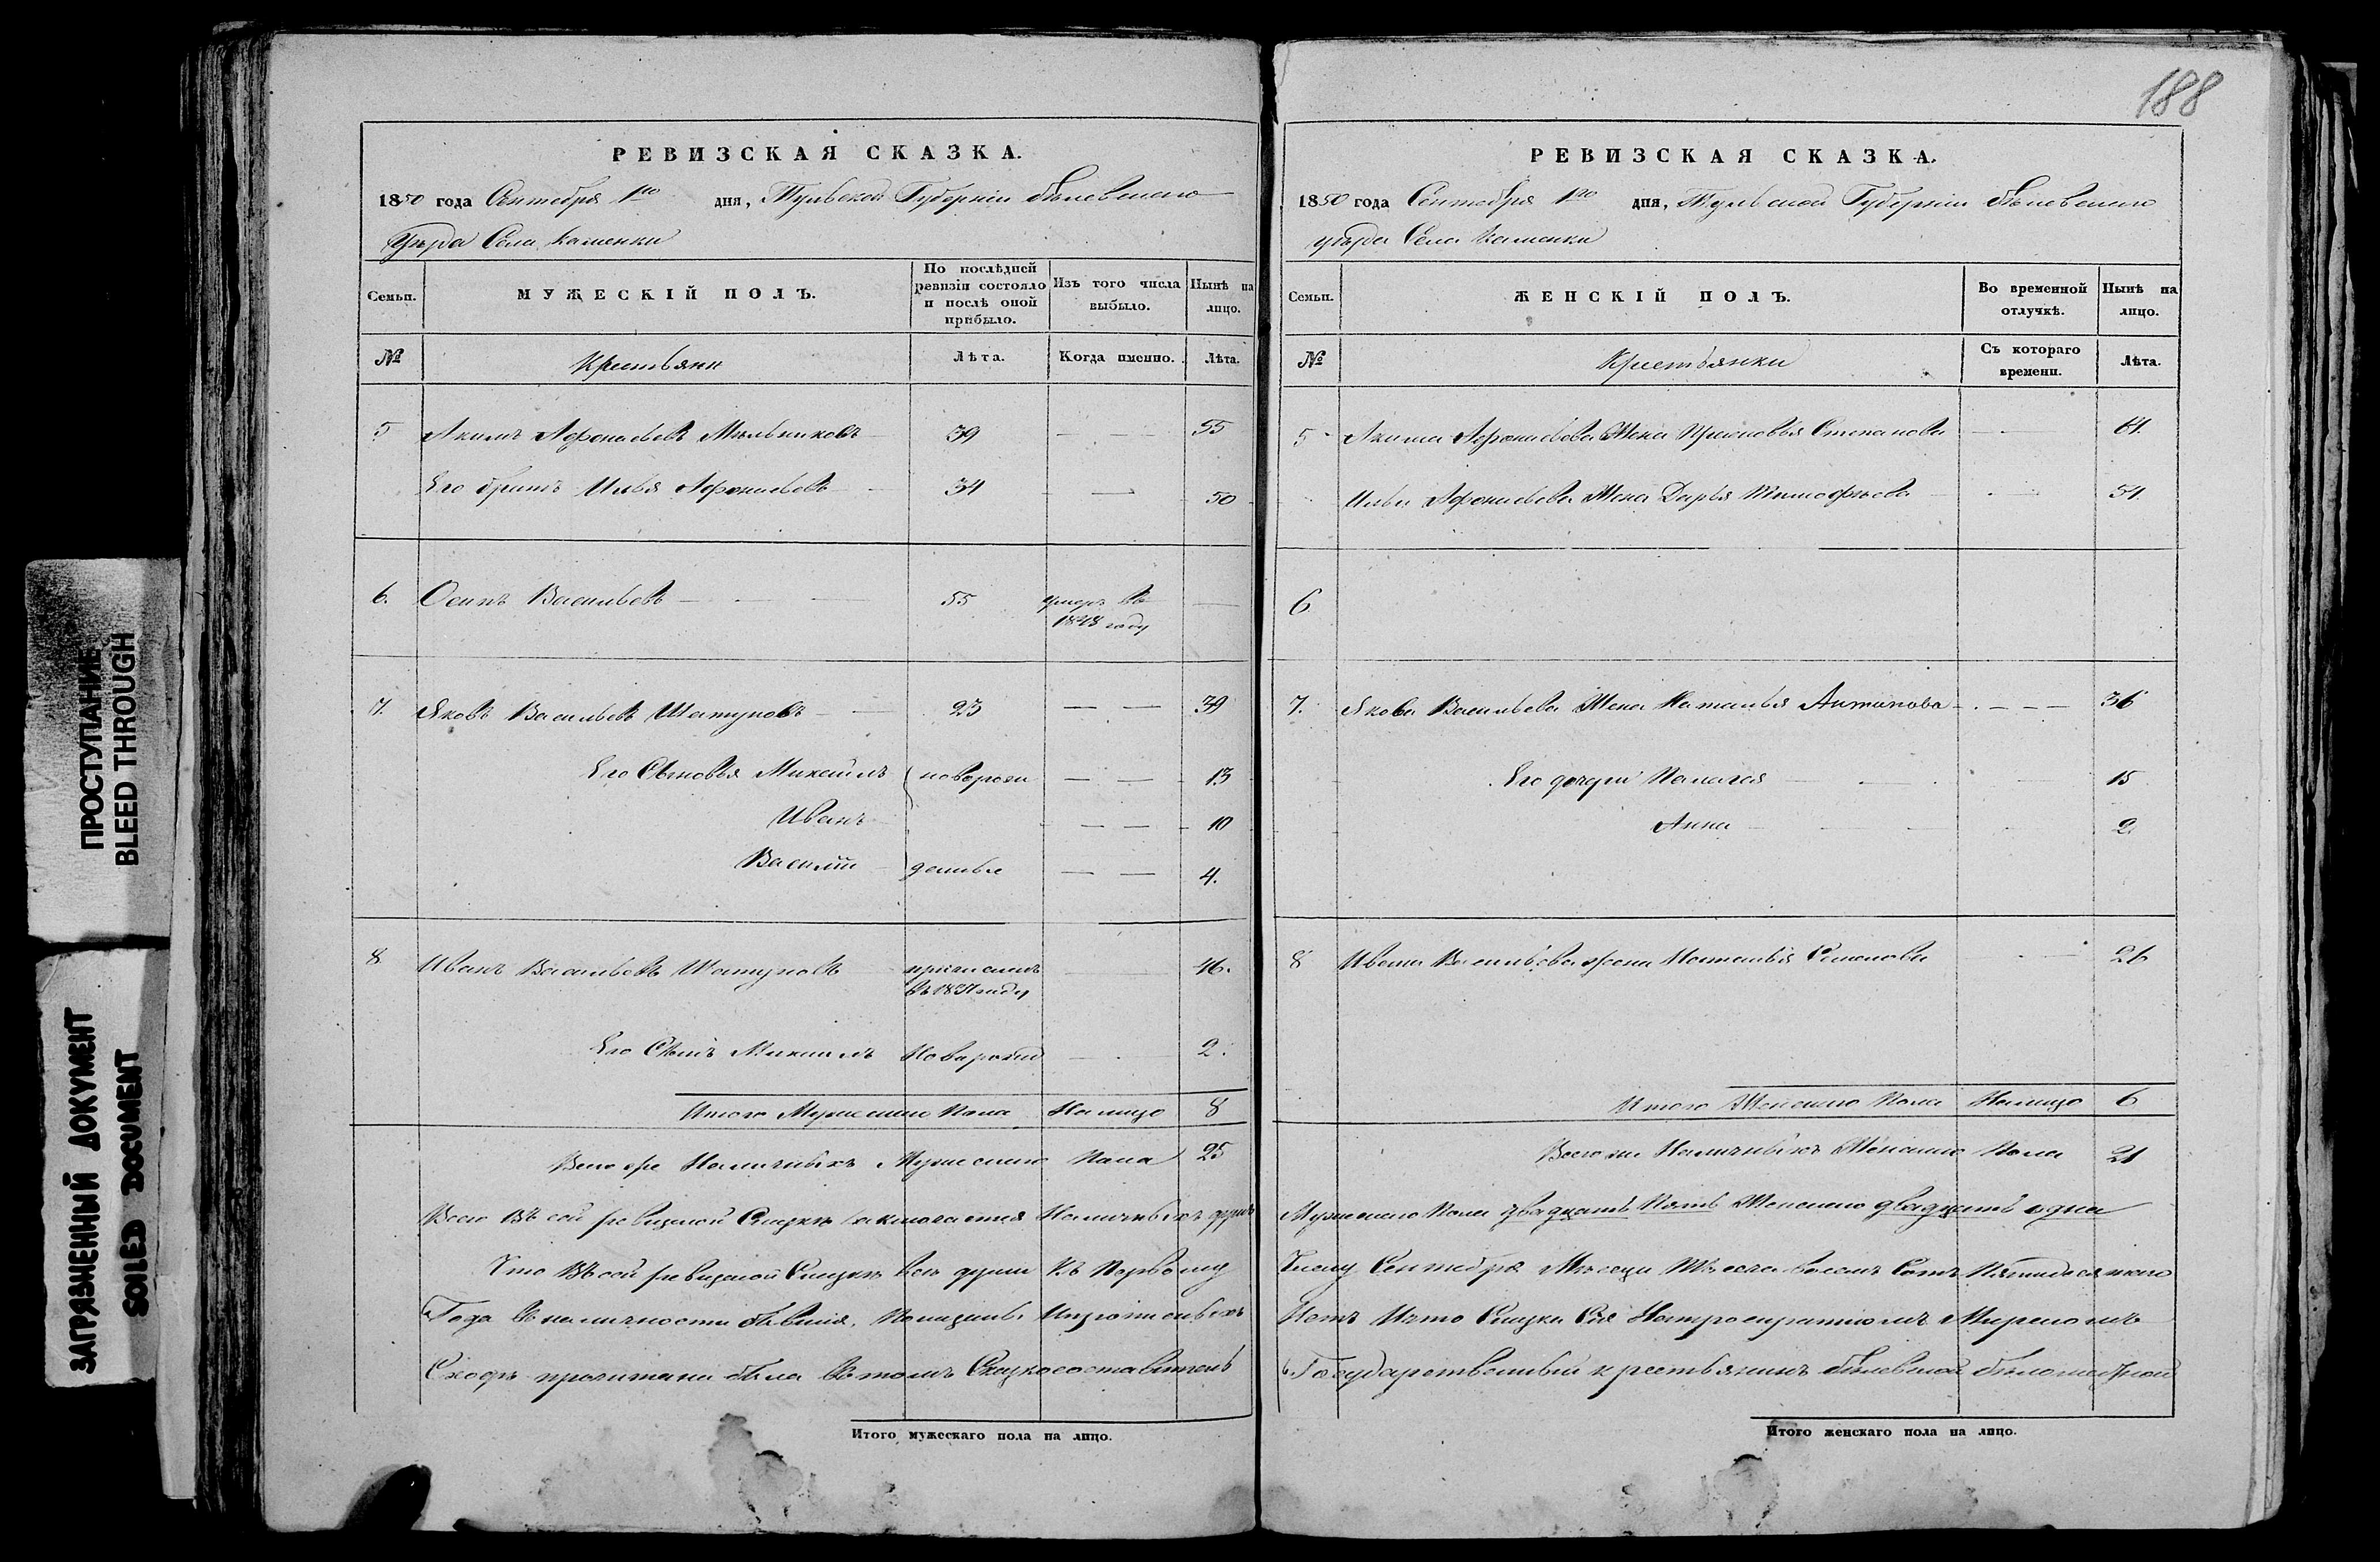 188
РЕВИЗСКАЯ СКАЗКА.
1850 года Сентября 1го дня, Тульской Губернии Бѣлевскаго
Уѣзда Села Каменки
Семьи.
МУЖЕСКІЙ ПОЛЪ.
По послѣдней ревизіи состояло и послѣ оной прибыло.
Изъ того числа выбыло.
Нынѣ на лицо.
№
Крестьяни
Лѣта.
Когда именно.
Лѣта.
5 Акимъ Афонасьевъ Мѣльниковъ 39 — — 55
Его братъ Илья Афонасьевъ 34 — — 50
6. Осипъ Васильевъ — 55 умеръ въ —
1848 году
7. Яковъ Васильевъ Шатуновъ — 23 — — 39
Его Сыновья Михаилъ новорож — — 13
Иванъ — — 10
Василій денные — — 4.
8 Иванъ Васильевъ Шатуновъ причисленъ — 46.
въ 1837 году
Его Сынъ Михаилъ Новорожд — 2.
Итого Мужеска Пола На лицо 8
Всего же Наличныхъ Мужескаго Пола 25
Всего Въ сей ревизской Сказкѣ заключается Наличныхъ душъ
Что Въ сей ревизской Сказкѣ всѣ души Къ Первому
Года въ наличности бывшія, Показаны
Сходѣ прочитана была въ томъ Сказкосоставитель
Итого мужескаго пола на лицо.
РЕВИЗСКАЯ СКАЗКА.
1850 года Сентября 1го дня, Тульской Губерніи Бѣлевскаго
уѣзда Села Каменки
Семьи.
ЖЕНСКІЙ ПОЛЪ.
Во временной отлучкѣ.
Нынѣ на лицо.
№
Крестьянки
Съ котораго времени.
Лѣта.
5 Акима Афонасьева Жена Прасковья Степанова — 61.
Ильи Афонасьева Жена Дарья Тимофѣева — 51.
6
7. Якова Васильева Жена Наталья Антипова — — — 36
Его дочери Палагея — 15
Анна — 2.
8 Ивана Васильева жена Наталья Семенова — 26
Итого Женскаго Пола На лицо 6
Всего же Наличныхъ Женскаго Пола 21
Мужескаго Пола двадцать Пять Женскаго двадцать одна
Числу Сентября Мѣсяца Тысяча восемъ Сотъ Пятидесятаго
Нѣтъ И что Сказка Сія Мирскомъ
Государственный крестьянинъ Бѣлевской
Итого женскаго пола на лицо.
ПРОСТУПАНИЕ
BLEED THROUGH
ЗАГРЯЗНЕННЫЙ ДОКУМЕНТ
SOILED DOCUMENT